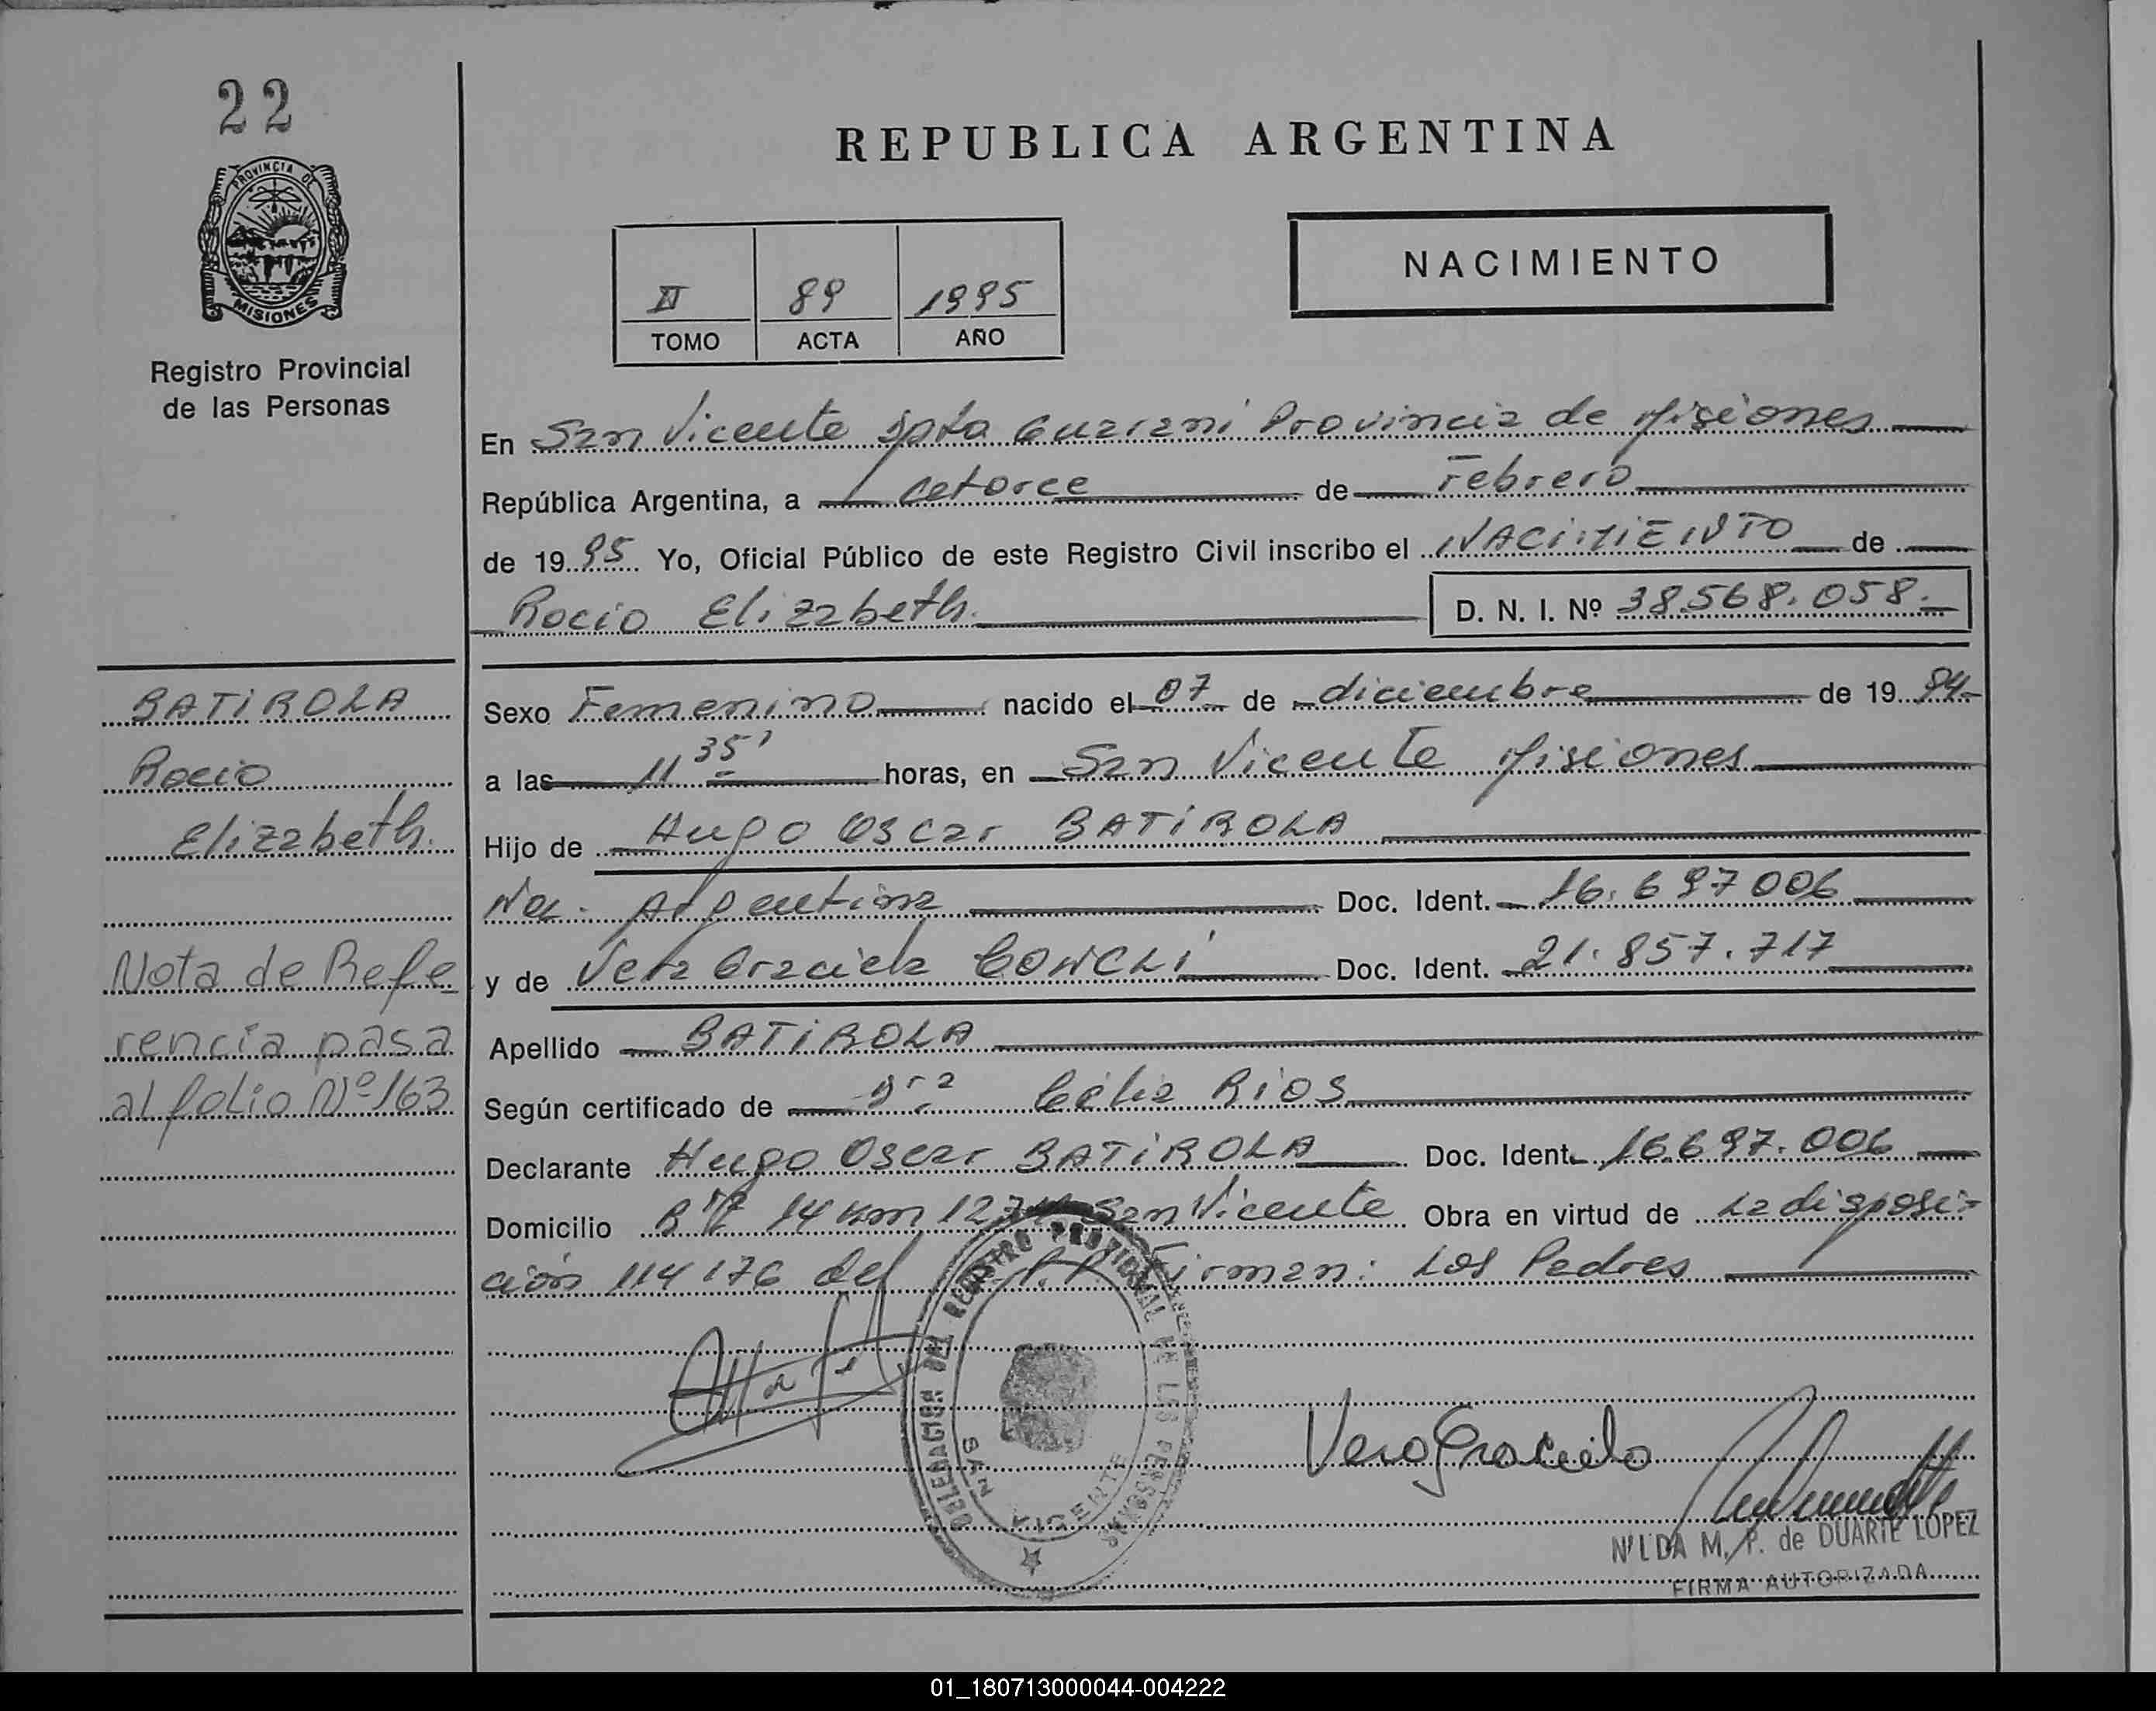 22
PROVINCIA DE
MISIONES
Registro Provincial
de las Personas
REPUBLICA ARGENTINA
NACIMIENTO
II 89 1995
TOMO ACTA AÑO
En San Vicente Dpto Guarani Provincia de Misiones
República Argentina, a catorce de Febrero
de 1995 Yo, Oficial Público de este Registro Civil inscribo el NACIMIENTO de
Rocio Elizabeth. D. N. I. Nº 38.568.058.
BATIROLA
Rocio
Elizabeth.
Nota de Refe-
rencia pasa
al folio Nº 163
Sexo Femenino nacido el 07 de diciembre de 19 94-
a las 11 35' horas, en San Vicente Misiones
Hijo de Hugo Oscar BATIROLA
Nac. Argentina Doc. Ident. 16.697006
y de Vera Graciela CONCLI Doc. Ident. 21.857.717
Apellido BATIROLA
Según certificado de Dra Celia RIOS
Declarante Hugo Oscar BATIROLA Doc. Ident. 16.697.006
Domicilio 14 Km San Vicente Obra en virtud de la disposi-
ción 114176 del Firman: Los Padres
DELEGACION DEL REGISTRO PROVINCIAL DE LAS PERSONAS
SAN VICENTE
Vera Graciela
NILDA M. P. de DUARTE LOPEZ
FIRMA AUTORIZADA
01_180713000044-004222